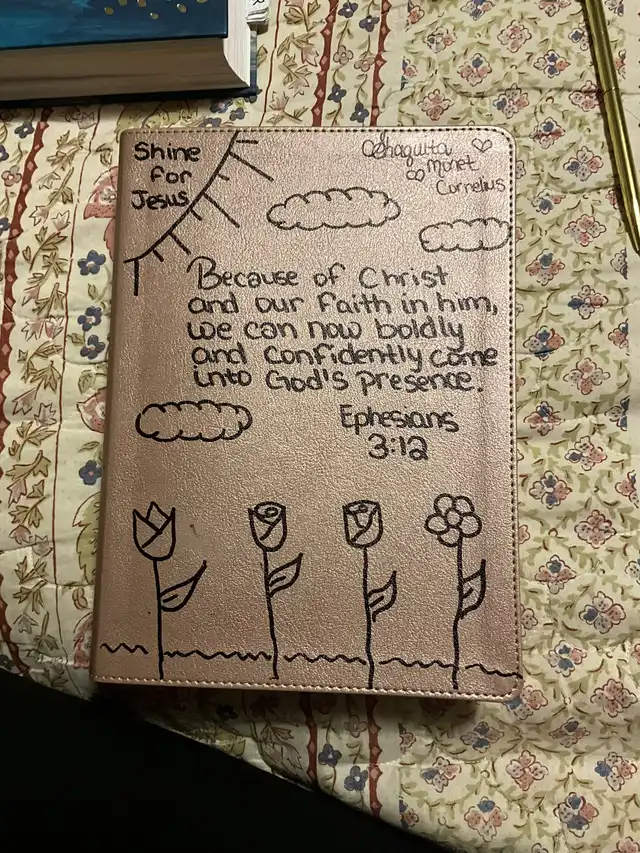 Shine
for
Jesus
Minet
Cornelius
Because of Christ
and our faith in him,
we can now boldly
and confidently come
into God's presence.
Ephesians
3:12